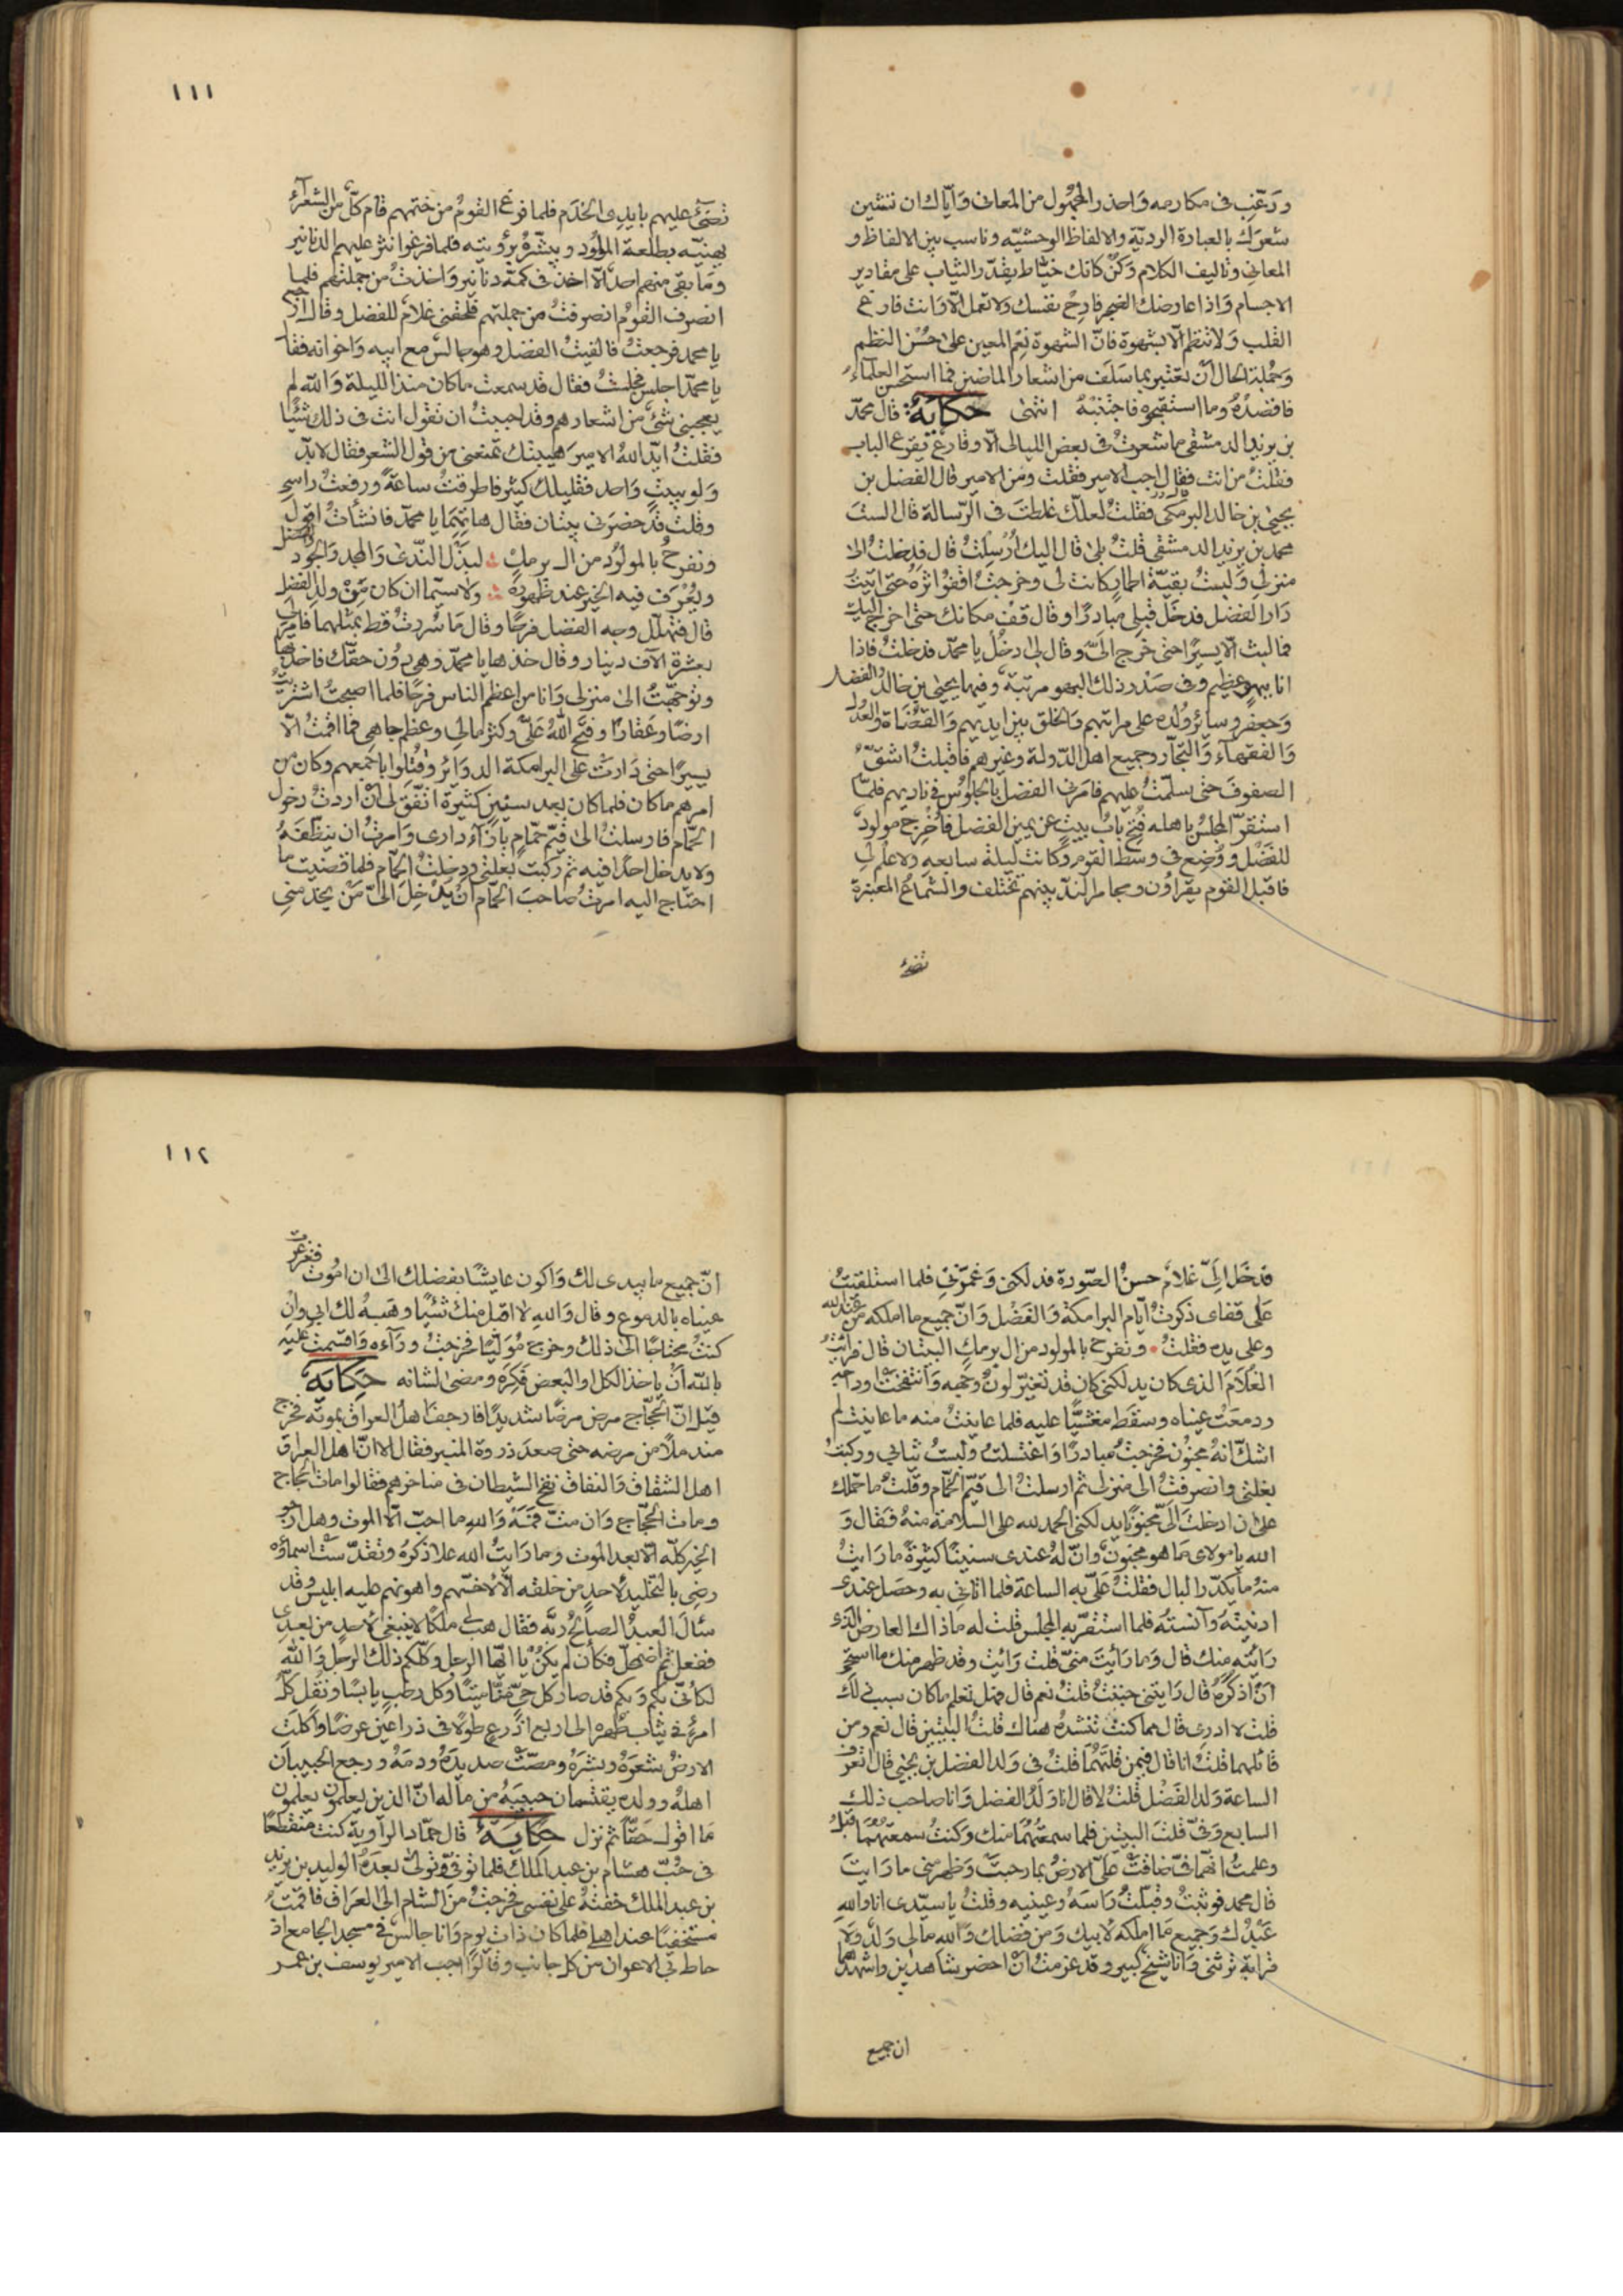 ورغب فى مكارمه واحذر المجهول من المعانى واياك ان تشين
شعرك بالعبارة الرديّة والالفاظ الوحشيّه وناسب بين الالفاظ و
المعانى وتاليف الكلام وكن كانك خيّاط يقدّر الثياب على مقادير
الاجسام واذا عارضك الضجر فارح نفسك ولا تعمل الّا وانت فارغ
القلب ولا تنظم الّا بشهوة فانّ الشهوة نعم المعين على حسن النظم
وجملة الحال ان تعتبر بما سلف من اشعار الماضين فما استحسن العلمآء
فاقصدهُ وما استقبحوه فاجتنبهُ انتهى حكاية قال محمّد
بن يزيد الدمشقى ما شعرتُ فى بعض الليالى الّا وقارع يقرع الباب
فقلتُ من انت فقال اجب الامير فقلت ومن الامير قال الفضل بن
يحيى بن خالد البرمكى فقلتُ لعلّك غلطتَ فى الرّسالة قال الستَ
محمد بن يزيد الدمشقى قلتُ بلى قال اليك اُرسلتُ قال فدخلتُ الى
منزلى ولبستُ بقيّة اطمارٍ كانت لى وخرجتُ اقفو اثرهُ حتى اتيتُ
دار الفضل فدخل قبلى مبادرًا وقال قف مكانك حتى اخرج اليك
فما لبث الّا يسيرًا حتى خرج الىّ وقال لى ادخل يا محمّد فدخلتُ فاذا
انا ببهوٍ عظيم وفى صدر ذلك البهو مرتبة وفيها يحيى بن خالد والفضل
وجعفر وسائر ولده على مراتبهم والخلق بين ايديهم والقضاة والعدل
والفقهآء والتجّار وجميع اهل الدّولة وغيرهم فاقبلتُ اشقّ
الصفوف حتى سلّمتُ عليهم فامرنى الفضل بالجلوس فى ناديهم فلمّا
استقرّ المجلس باهله فُتح باب بيتٍ عن يمين الفضل فاُخرج مولود
للفضل ووُضع فى وسط القوم وكانت ليلة سابعه ولا علم لى
فاقبل القوم يقراون ومجامر الندّ بينهم تختلف والشماع المعنبرة
تضئ
١١١
تضئ عليهم بايدى الخدم فلما فرغ القوم من ختمهم قام كلّ من الشعرآء
يهنيّه بطلعة المولود ويبشّره برؤيته فلما فرغوا نثر عليهم الدنانير
وما بقى منهم احد الّا اخذ فى كمّه دنانير واخذت من جملتهم فلما
انصرف القوم انصرفتُ من جملتهم فلحقنى غلام للفضل وقال ارجع
يا محمد فرجعتُ فالفيتُ الفضل وهو جالس مع ابيه واخوانه فقال
يا محمّد اجلس فجلستُ فقال قد سمعتَ ما كان منذ الليلة والله لم
يعجبنى شئ من اشعارهم وقد احببتُ ان تقول انت فى ذلك شيًا
فقلتُ ايّد الله الامير هيبتك تمنعنى من قول الشعر فقال لا بدّ
ولو ببيتٍ واحد فقليلك كثير فاطرقتُ ساعةً ورفعتُ راسى
وقلت قد حضرنى بيتان فقال هاتهما يا محمّد فانشأتُ اقول
ونفرح بالمولود من ال برمكٍ لبذل الندى والمجد والجود والفضل
ويُعرف فيه الخير عند ظهوره ولا سيّما ان كان من ولد الفضل
قال فتهلّل وجه الفضل فرحًا وقال ما سُررتُ قط بمثلهما فامر لى
بعشرة الآف دينار وقال خذها يا محمّد وهى دون حقّك فاخذتها
وتوجّهتُ الى منزلى وانا من اعظم الناس فرحًا فلما اصبحتُ اشتريتُ
ارضًا وعقارًا وفتح الله علىّ وكثر مالى وعظم جاهى فما اقمتُ الّا
يسيرًا حتى دارت على البرامكة الدوائر وقُتلوا باجمعهم وكان من
امرهم ما كان فلما كان بعد سنين كثيرة اتّفق لى ان اردتُ دخول
الحمّام فارسلتُ الى قيّم حمّام بازآء دارى وامرتُ ان ينظّفهُ
ولا يدخل احدًا فيه ثم ركبت بغلتى ودخلتُ الحمّام فلما قضيت ما
احتاج اليه امرتُ صاحب الحمّام ان يدخل الىّ من يخدمنى
فدخل الىّ غلام حسنُ الصّورة فدلكنى وغمّزنى فلما استلقيتُ
على قفاى ذكرتُ ايّام البرامكة والفضل وانّ جميع ما املكه من عند الله
وعلى يده فقلتُ ونفرح بالمولود من ال برمكٍ البيتان قال فرايتُ
الغلام الذى كان يدلكنى كان قد تغيّر لونُ وجهه وانتفخت اوداجه
ودمعت عيناه وسقط مغشيًّا عليه فلما عاينتُ منه ما عاينتُ لم
اشكّ انهُ مجنون فخرجتُ مبادرًا واغتسلتُ ولبستُ ثيابى وركبتُ
بغلتى وانصرفتُ الى منزلى ثم ارسلتُ الى قيّم الحمّام وقلتُ ما حملك
على ان ادخلتَ الىّ مجنونًا يدلكنى الحمد لله على السلامة منهُ فقال و
الله يا مولاى ما هو مجنون وانّ لهُ عندى سنينًا كثيرةً ما رايتُ
منهُ ما يكدّر البال فقلتُ علىّ به الساعة فلما اتانى به وحصل عندى
ادنيتهُ وآنستهُ فلما استقرّ به المجلس قلت له ما ذاك العارض الذى
رائيته منك قال وما رأيتَ منّى قلت رأيت وقد ظهر منك ما استحى
ان اذكرهُ قال رايتنى جننتُ قلتُ نعم قال فهل تعلم ما كان سببُ ذلك
قلت لا ادرى قال مما كنتَ تنشدهُ هناك قلتُ البيتين قال نعم ومن
قائلهما قلتُ انا قال فيمن قلتهما قلتُ فى ولد الفضل بن يحيى قال اتعرف
الساعة ولد الفضل قلتُ لا قال انا ولد الفضل وانا صاحب ذلك
السابع وفىّ قلتَ البيتين فلما سمعتهما منك وكنتُ سمعتهما قبلُ
وعلمتُ انّهما فىّ ضاقت علىّ الارضُ بما رحبت وظهر منى ما رايتَ
قال محمد فوثبتُ وقبّلتُ راسهُ وعينيه وقلتُ يا سيّدى انا والله
عبدك وجميع ما املكه لابيك ومن فضلك والله مالى ولد ولا
قرابة ترثنى وانا شيخ كبير وقد عزمتُ ان احضر شاهدين واشهدهما
ان جميع
١١٢
انّ جميع ما بيدى لك واكون عايشًا بفضلك الى ان اموت فتغرغرت
عيناه بالدموع وقال والله لا اقبل منك شيئًا وهبهُ لك ابى وان
كنتُ محتاجًا الى ذلك وخرج مولّيًا فخرجتُ ورآءه واقسمتُ عليه
بالله ان ياخذ الكل او البعض فكره ومضى لشانه حكاية
قيل انّ الحجّاج مرض مرضًا شديدًا فارجف اهل العراق بموته فخرج
متململًا من مرضه حتى صعد ذروة المنبر فقال الا انّ اهل العراق
اهل الشقاق والنفاق نفخ الشيطان فى مناخرهم فقالوا مات الحجاج
ومات الحجّاج وان متّ فمَهْ والله ما احبّ الّا الموت وهل ارجو
الخير كلّه الّا بعد الموت وما رايتُ الله علا ذكرهُ وتقدّست اسماؤه
رضى بالتخليد لاحدٍ من خلقه الّا لاخسّهم واهونهم عليه ابليس وقد
سأل العبدُ الصالح ربّه فقال هب لى ملكًا لا ينبغى لاحدٍ من بعدى
ففعل ثم اضمحلّ فكان لم يكن يا ايّها الرجل وكلّكم ذلك الرجل والله
لكانّى بكم وبكم قد صار كل حىّ منّا ميتًا وكل رطبٍ يابسًا ونُقل كلّ
امرئ فى ثياب طهره الى اربع اذرع طولًا فى ذراعين عرضًا واكلت
الارضُ شعرهُ وبشرهُ ومصّت صديدهُ ودمهُ ورجع الحبيبان
اهلهُ وولده يقتسمان حبيبهُ من ماله انّ الذين يعلمون يعلمون
ما اقول حقًّا ثم نزل حكاية قال حمّاد الراوية كنت منقطعًا
فى حُبّ هشام بن عبد الملك فلما توفى وتولى بعدهُ الوليد بن يزيد
بن عبد الملك خفتهُ على نفسى فخرجتُ من الشام الى العراق فاقمتُ
مستخفيًا عند اهلى فلما كان ذات يوم وانا جالس فى مسجد الجامع اذ
حاط بى الاعوان من كل جانب وقالوا اجب الامير يوسف بن عمر